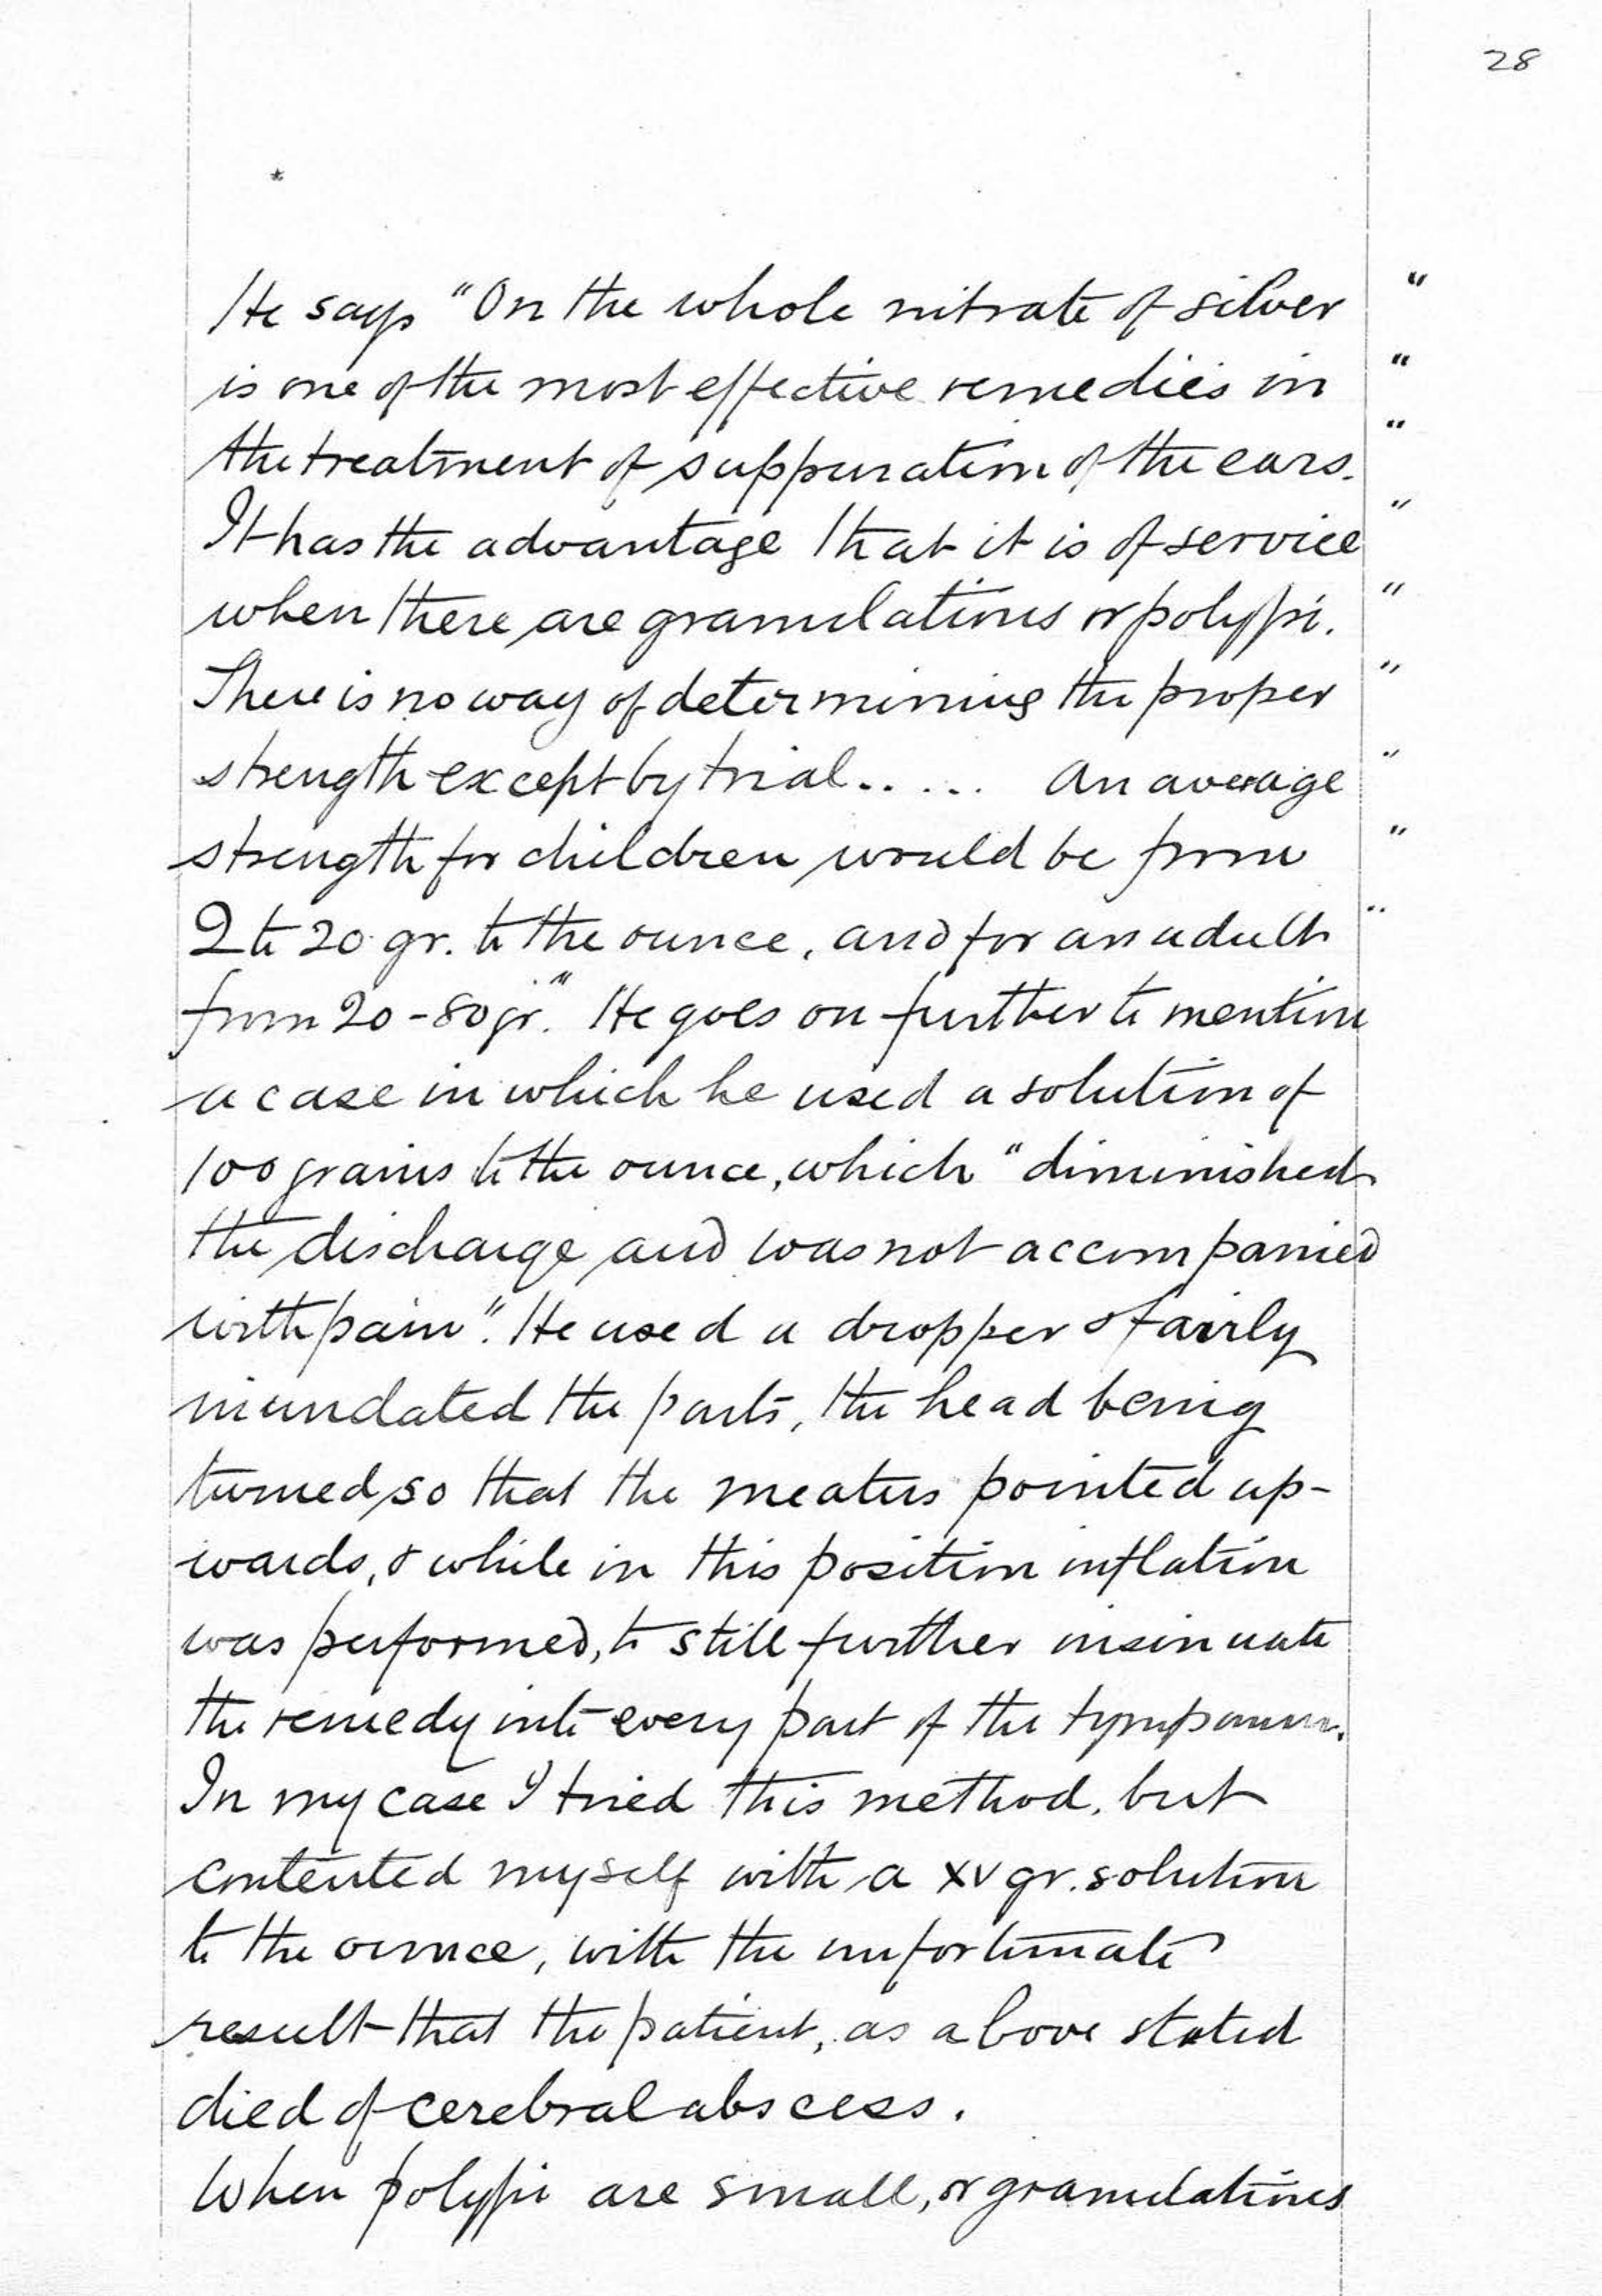 28
He says "On the whole nitrate of silver "
is one of the most effective remedies in "
the treatment of suppuration of the ears. "
It has the advantage that it is of service "
when there are granulations or polypi. "
There is no way of determining the proper "
strength except by trial..... An average "
strength for children would be from "
2 to 20 gr. to the ounce, and for an adult "
from 20-80 gr." He goes on further to mention
a case in which he used a solution of
100 grains to the ounce, which "diminished
the discharge and was not accompanied
with pain". He used a dropper & fairly
inundated the parts, the head being
turned so that the meatus pointed up-
wards, & while in this position inflation
was performed, to still further insinuate
the remedy into every part of the tympanum.
In my case I tried this method, but
contented myself with a xv gr. solution
to the ounce, with the unfortunate
result that the patient, as above stated
died of cerebral abscess.
When polypi are small, or granulations